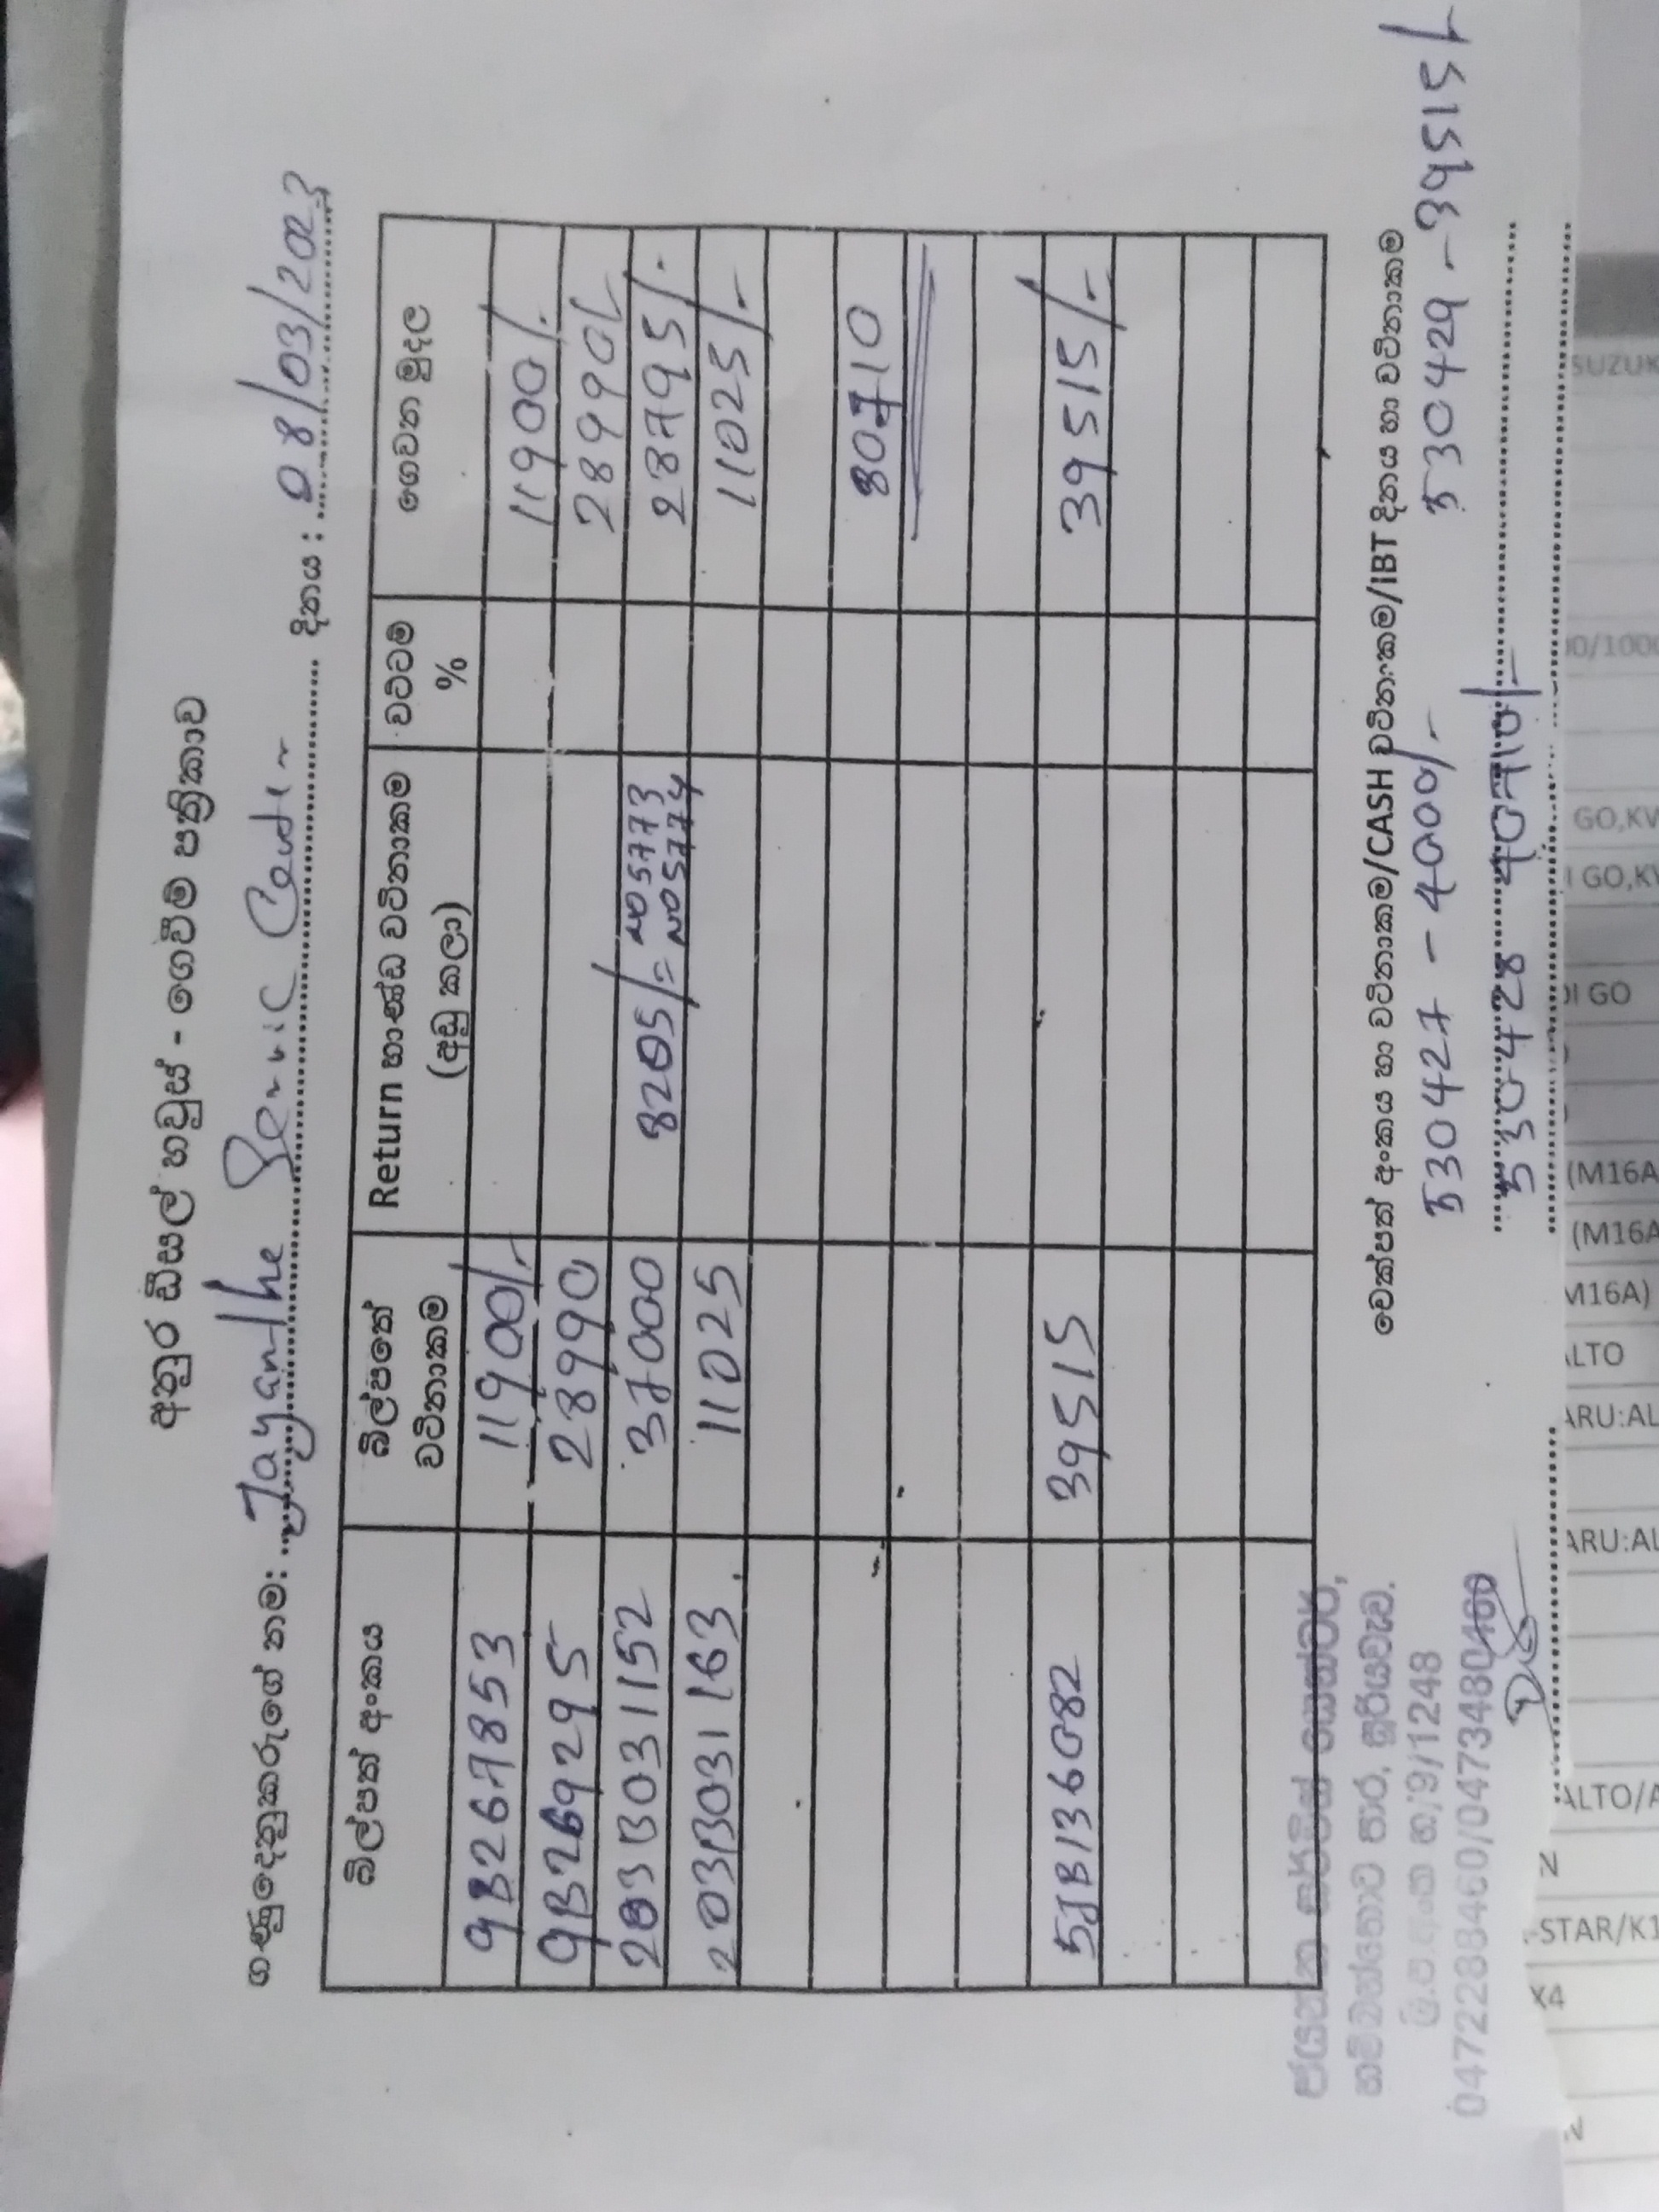 අනුර ඩීසල් හවුස් - ගෙවීම් පත්‍රිකාව
ගණුදෙනුකරුගේ නම: Jayanthe Servic Center දිනය : 08/03/2023
බිල්පත් අංකය බිල්පතේ වටිනාකම Return භාණ්ඩ වටිනාකම (අඩු කලා) වට්ටම් % ගෙවන මුදල
9B267853 11900/- 11900/-
9B269295 28990 28990/-
203B031152 37000 8205/= NO 5773 NO 5774 28795/-
203B031163 11025 11025/-
80710
5JB136082 39515 39515/-
චෙක්පත් අංකය හා වටිනාකම/CASH වටිනාකම/IBT දිනය හා වටිනාකම
530427 - 40000/- 530429 - 39515/-
530428 40710/-
හම්බන්තොට පාර, සූරියවැව.
0472288460/0473480460
SUZUK
00/1000
GO,KV
I GO,KV
DI GO
(M16A
(M16A
M16A)
ALTO
ARU:AL
ARU:AL
ALTO/A
N
-STAR/K1
X4